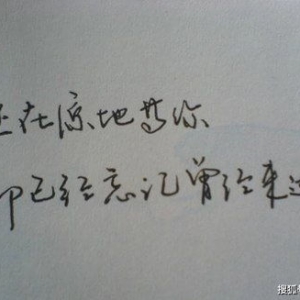 还在原地等你
却已经忘记曾经来过
搜狐